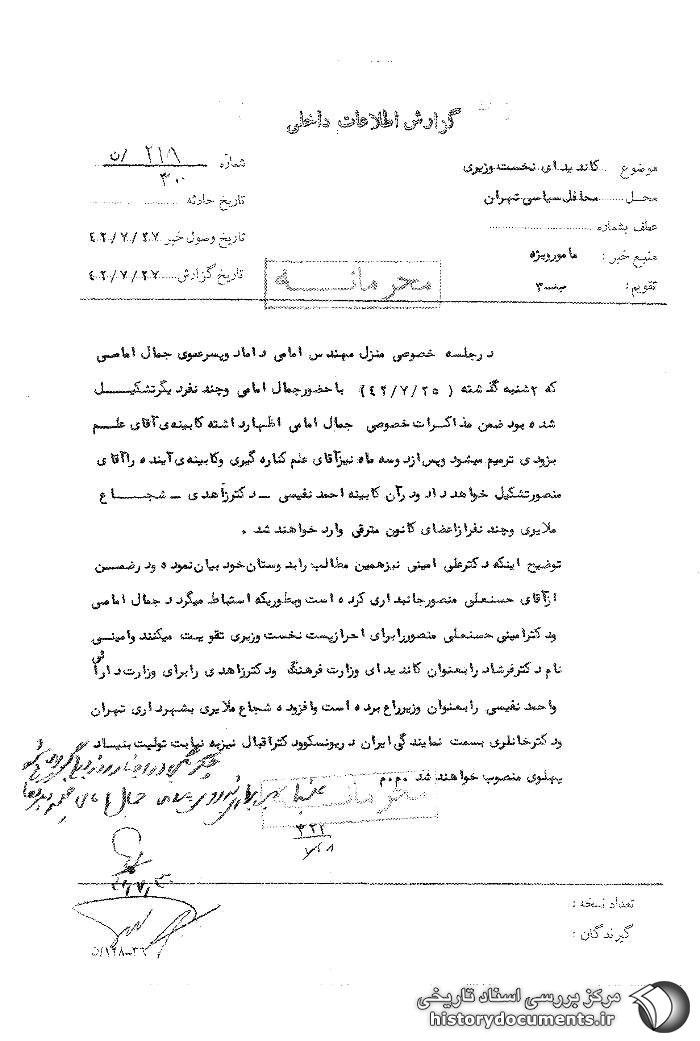 گزارش اطلاعات داخلی
موضوع کاندیدای نخست وزیری
محل محافل سیاسی تهران
عطف بشماره
منبع خبر : مامور ویژه
تقویم : ب-۳
شماره ۲۱۸ /ن
۳۰۰
تاریخ حادثه
تاریخ وصول خبر ۴۲/۷/۲۷
تاریخ گزارش ۴۲/۷/۲۷
محرمانه
درجلسه خصوصی منزل مهندس امامی داماد وپسرعموی جمال امامی
که ۲شنبه گذشته ( ۴۲/۷/۲۵) باحضورجمال امامی وچند نفردیگرتشکیل
شده بود ضمن مذاکرات خصوصی جمال امامی اظهارداشته کابینه‌ی آقای علم
بزودی ترمیم میشود وپس ازدوسه ماه نیزآقای علم کناره گیری وکابینه‌ی آینده راآقای
منصورتشکیل خواهدداد ودرآن کابینه احمد نفیسی - دکترزاهدی - شجاع
ملایری وچند نفرازاعضای کانون مترقی وارد خواهند شد .
توضیح اینکه دکترعلی امینی نیزهمین مطالب رابدوستان خود بیان نموده ودرضمن
ازآقای حسنعلی منصورجانبداری کرده است وبطوریکه استنباط میگردد جمال امامی
ودکترامینی حسنعلی منصوررابرای احرازپست نخست وزیری تقویت میکنند وامینی
نام دکترفرشاد رابعنوان کاندیدای وزارت فرهنگ ودکترزاهدی رابرای وزارت دارائی
واحمد نفیسی رابعنوان وزیرراع برده است وافزوده شجاع ملایری بشهرداری تهران
ودکترخانلری بسمت نمایندگی ایران دریونسکوودکتراقبال نیزبه نیابت تولیت بنیاد
پهلوی منصوب خواهند شد م۰م
محرمانه
۳۲۲
۷/۳۰
تعداد نسخه :
گیرندگان :
۳۶-۱۲۸/ن
مرکز بررسی اسناد تاریخی
historydocuments.ir